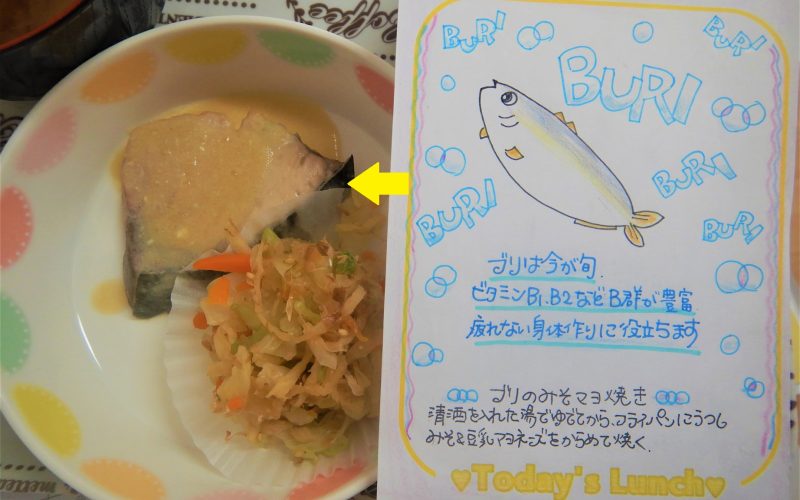 Coffee
BURI
BURI
BURI
BURI
BURI
BURI
ブリは今が旬.
ビタミンB1、B2などB群が豊富
疲れない身体作りに役立ちます
ブリのみそマヨ焼き
清酒を入れた湯でゆでてから、フライパンにうつし
みそ&豆乳マヨネーズをからめて焼く.
♥Today's Lunch♥